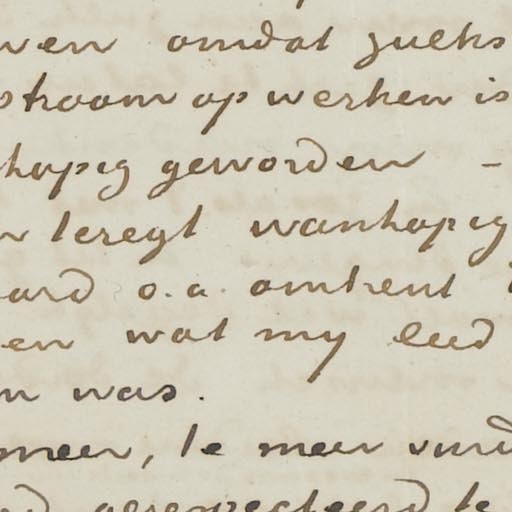 ven omdat zulks
stroom op werken is
hopig geworden –
n teregt wanhopig
aard o.a. omtrent
en wat my leed
n was.
meer, te meer vind
gerespecteerd te